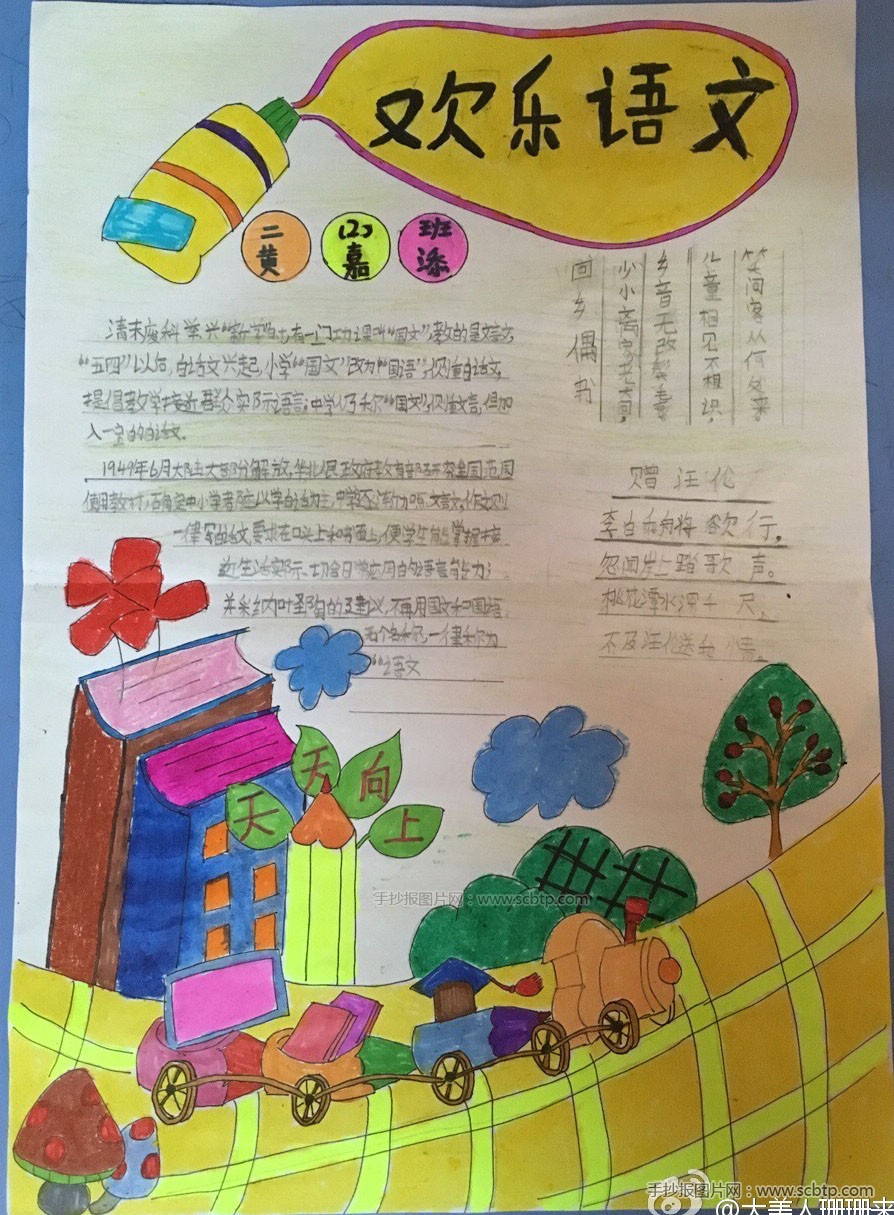 欢乐语文
二(2)班
黄嘉添
清末废科举兴"新学"时,有一门功课叫"国文",教的是文言文,
"五四"以后,白话文兴起,小学"国文"改为"国语",仅重白话文,
提倡教学接近群众实际语言;中学仍称"国文"仅重文言,但加
入一定的白话文.
1949年6月大陆大部分解放,华北人民政府教育部研究全国范围
使用教材,
一律写语体文,要求在口头上和书面上,使学生能掌握接
近生活实际、切合日常应用的语言能力;
并采纳叶圣陶的建议,不再用国文和国语
两个名称,一律称为
"语文
回乡偶书
少小离家老大回,
乡音无改鬓毛衰
儿童相见不相识,
笑问客从何处来。
赠汪伦
李白乘舟将欲行,
忽闻岸上踏歌声。
桃花潭水深千尺,
不及汪伦送我情。
天天向上
手抄报图片网:www.scbtp.com
手抄报图片网:www.scbtp.com
@大美人珊珊来